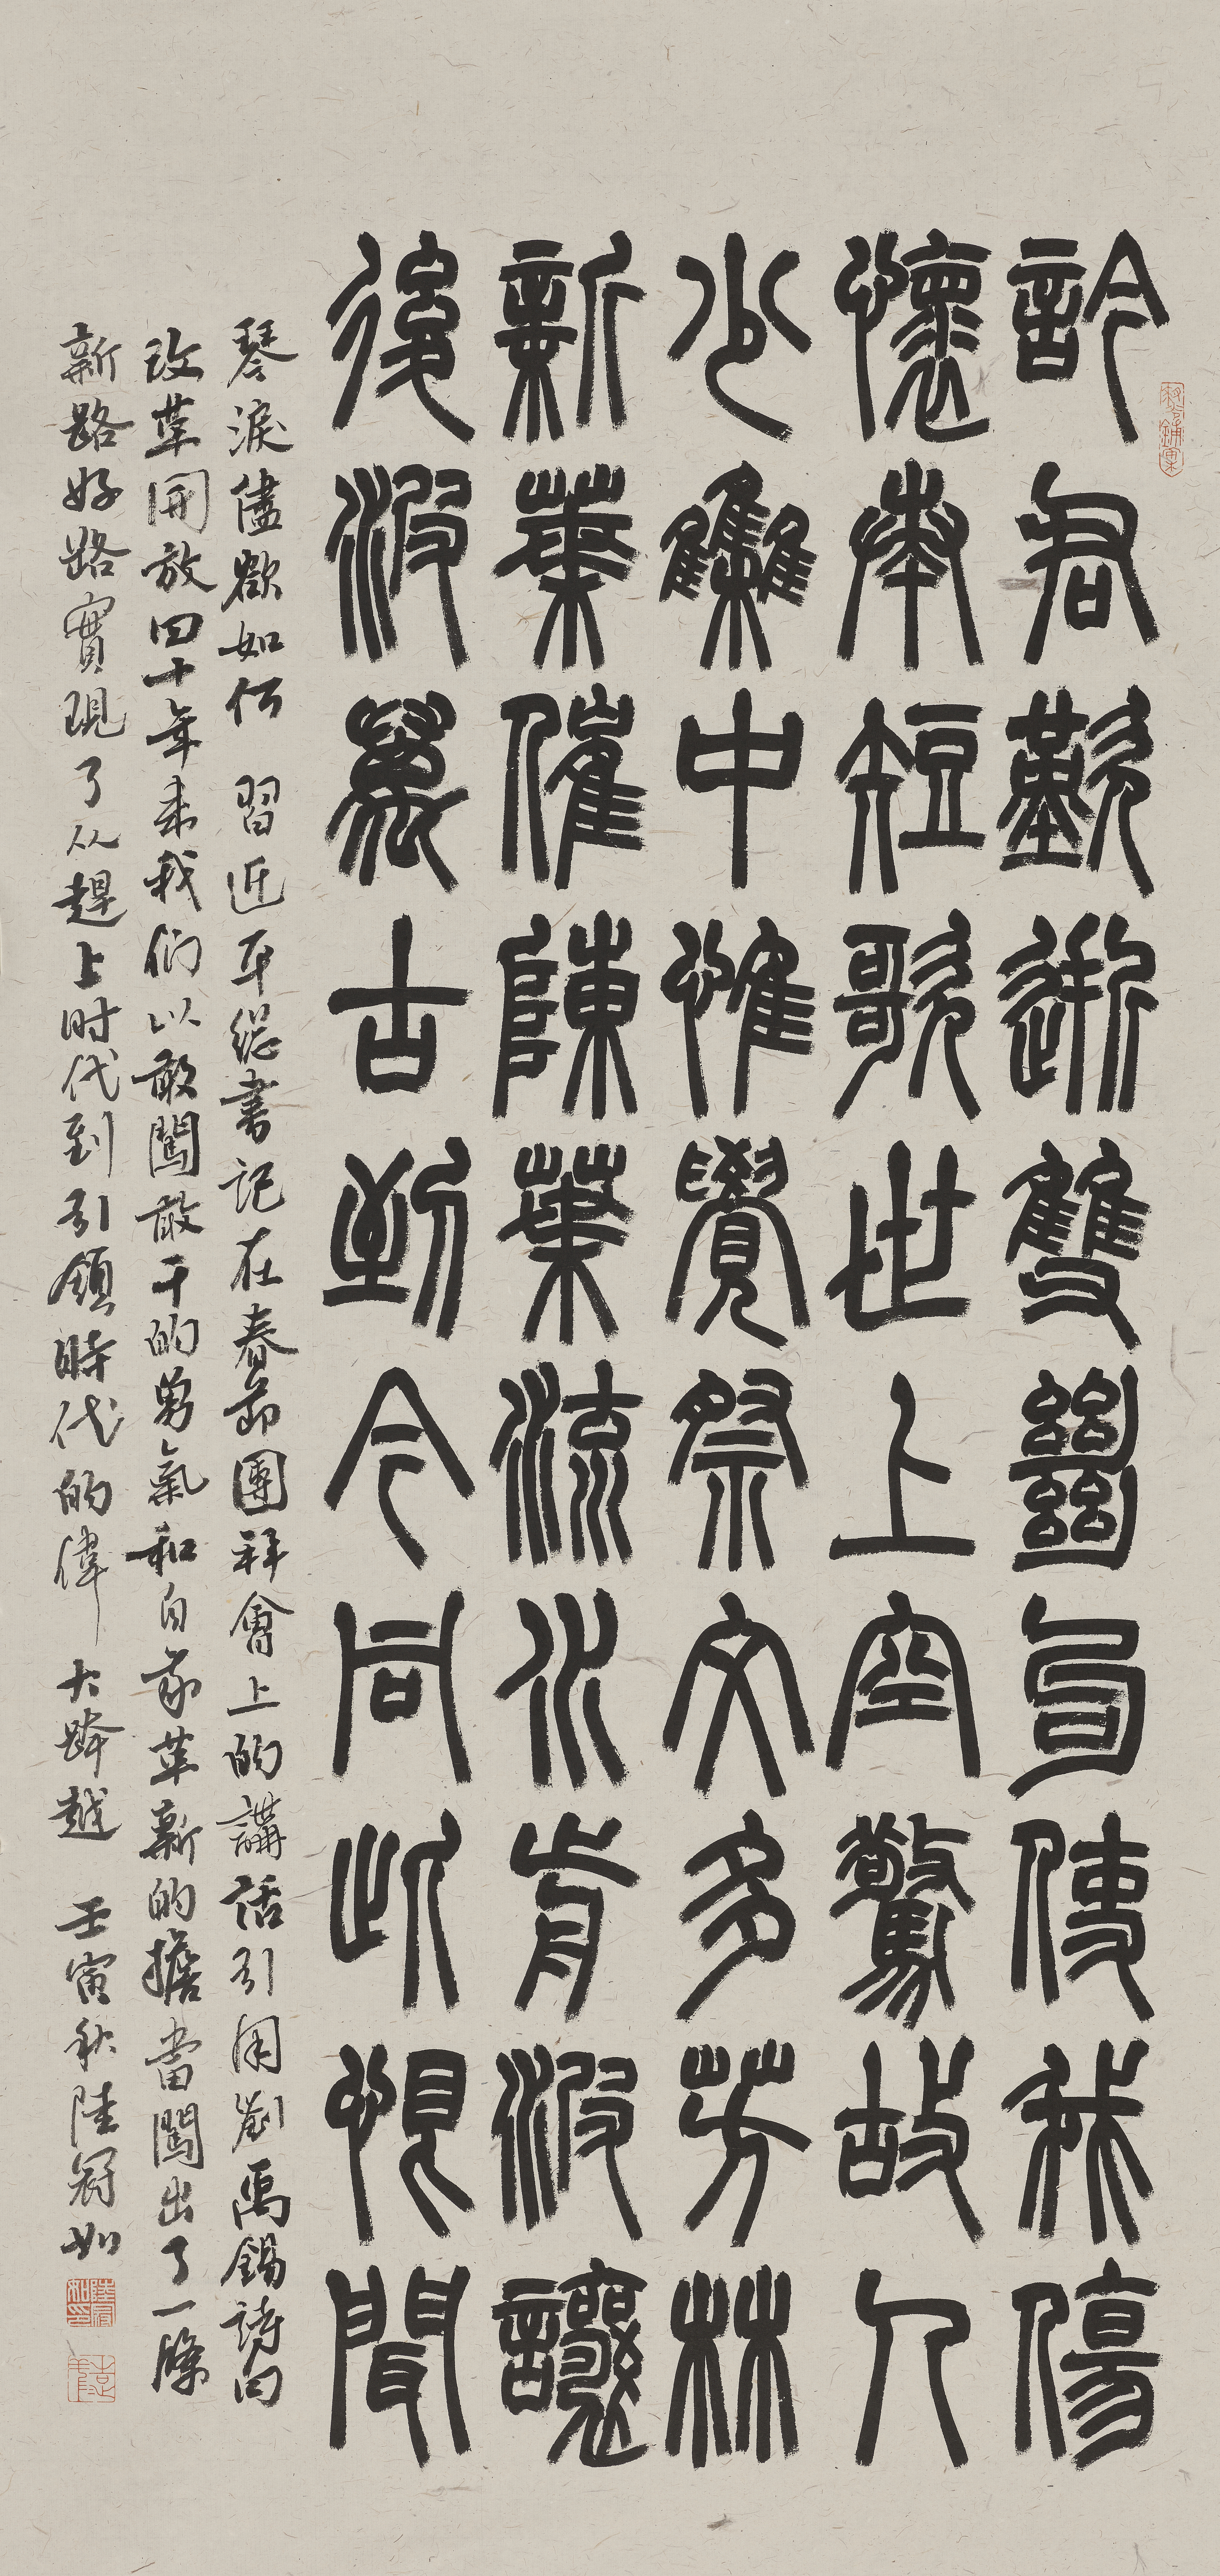 訡君歎逝雙絕句使我傷
懷奏短歌世上空驚故人
少雧中惟覺祭文多芳林
新葉催陳葉流水歬波讓
後波萬古到今同此恨聞
琴淚儘欲如何 習近平總書記在春節團拜會上的講話引用劉禹錫詩曰
改革開放四十年來我們以敢闖敢干的勇氣和自我革新的擔當闖出了一條
新路好路實現了从趕上时代到引領時代的偉大跨越 壬寅秋陸冠如
陸冠如印